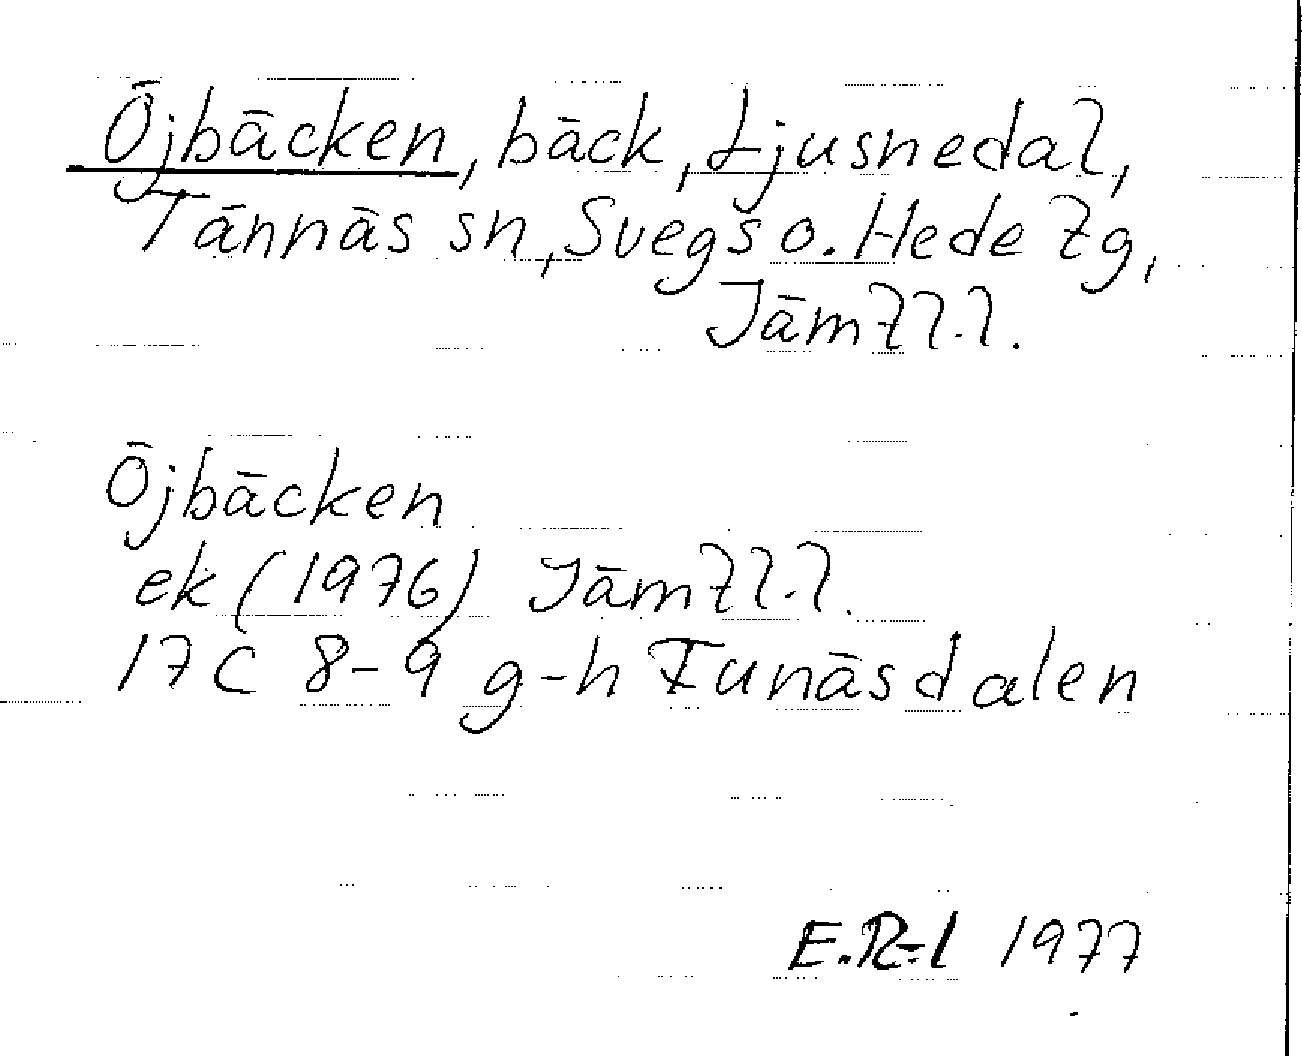 Öjbäcken, bäck, Ljusnedal,
Tännäs sn, Svegs o. Hede tg,
Jämtl.l.
Öjbäcken
ek (1976) Jämtl.l.
17C 8-9 g-h Funäsdalen
E.R-l 1977